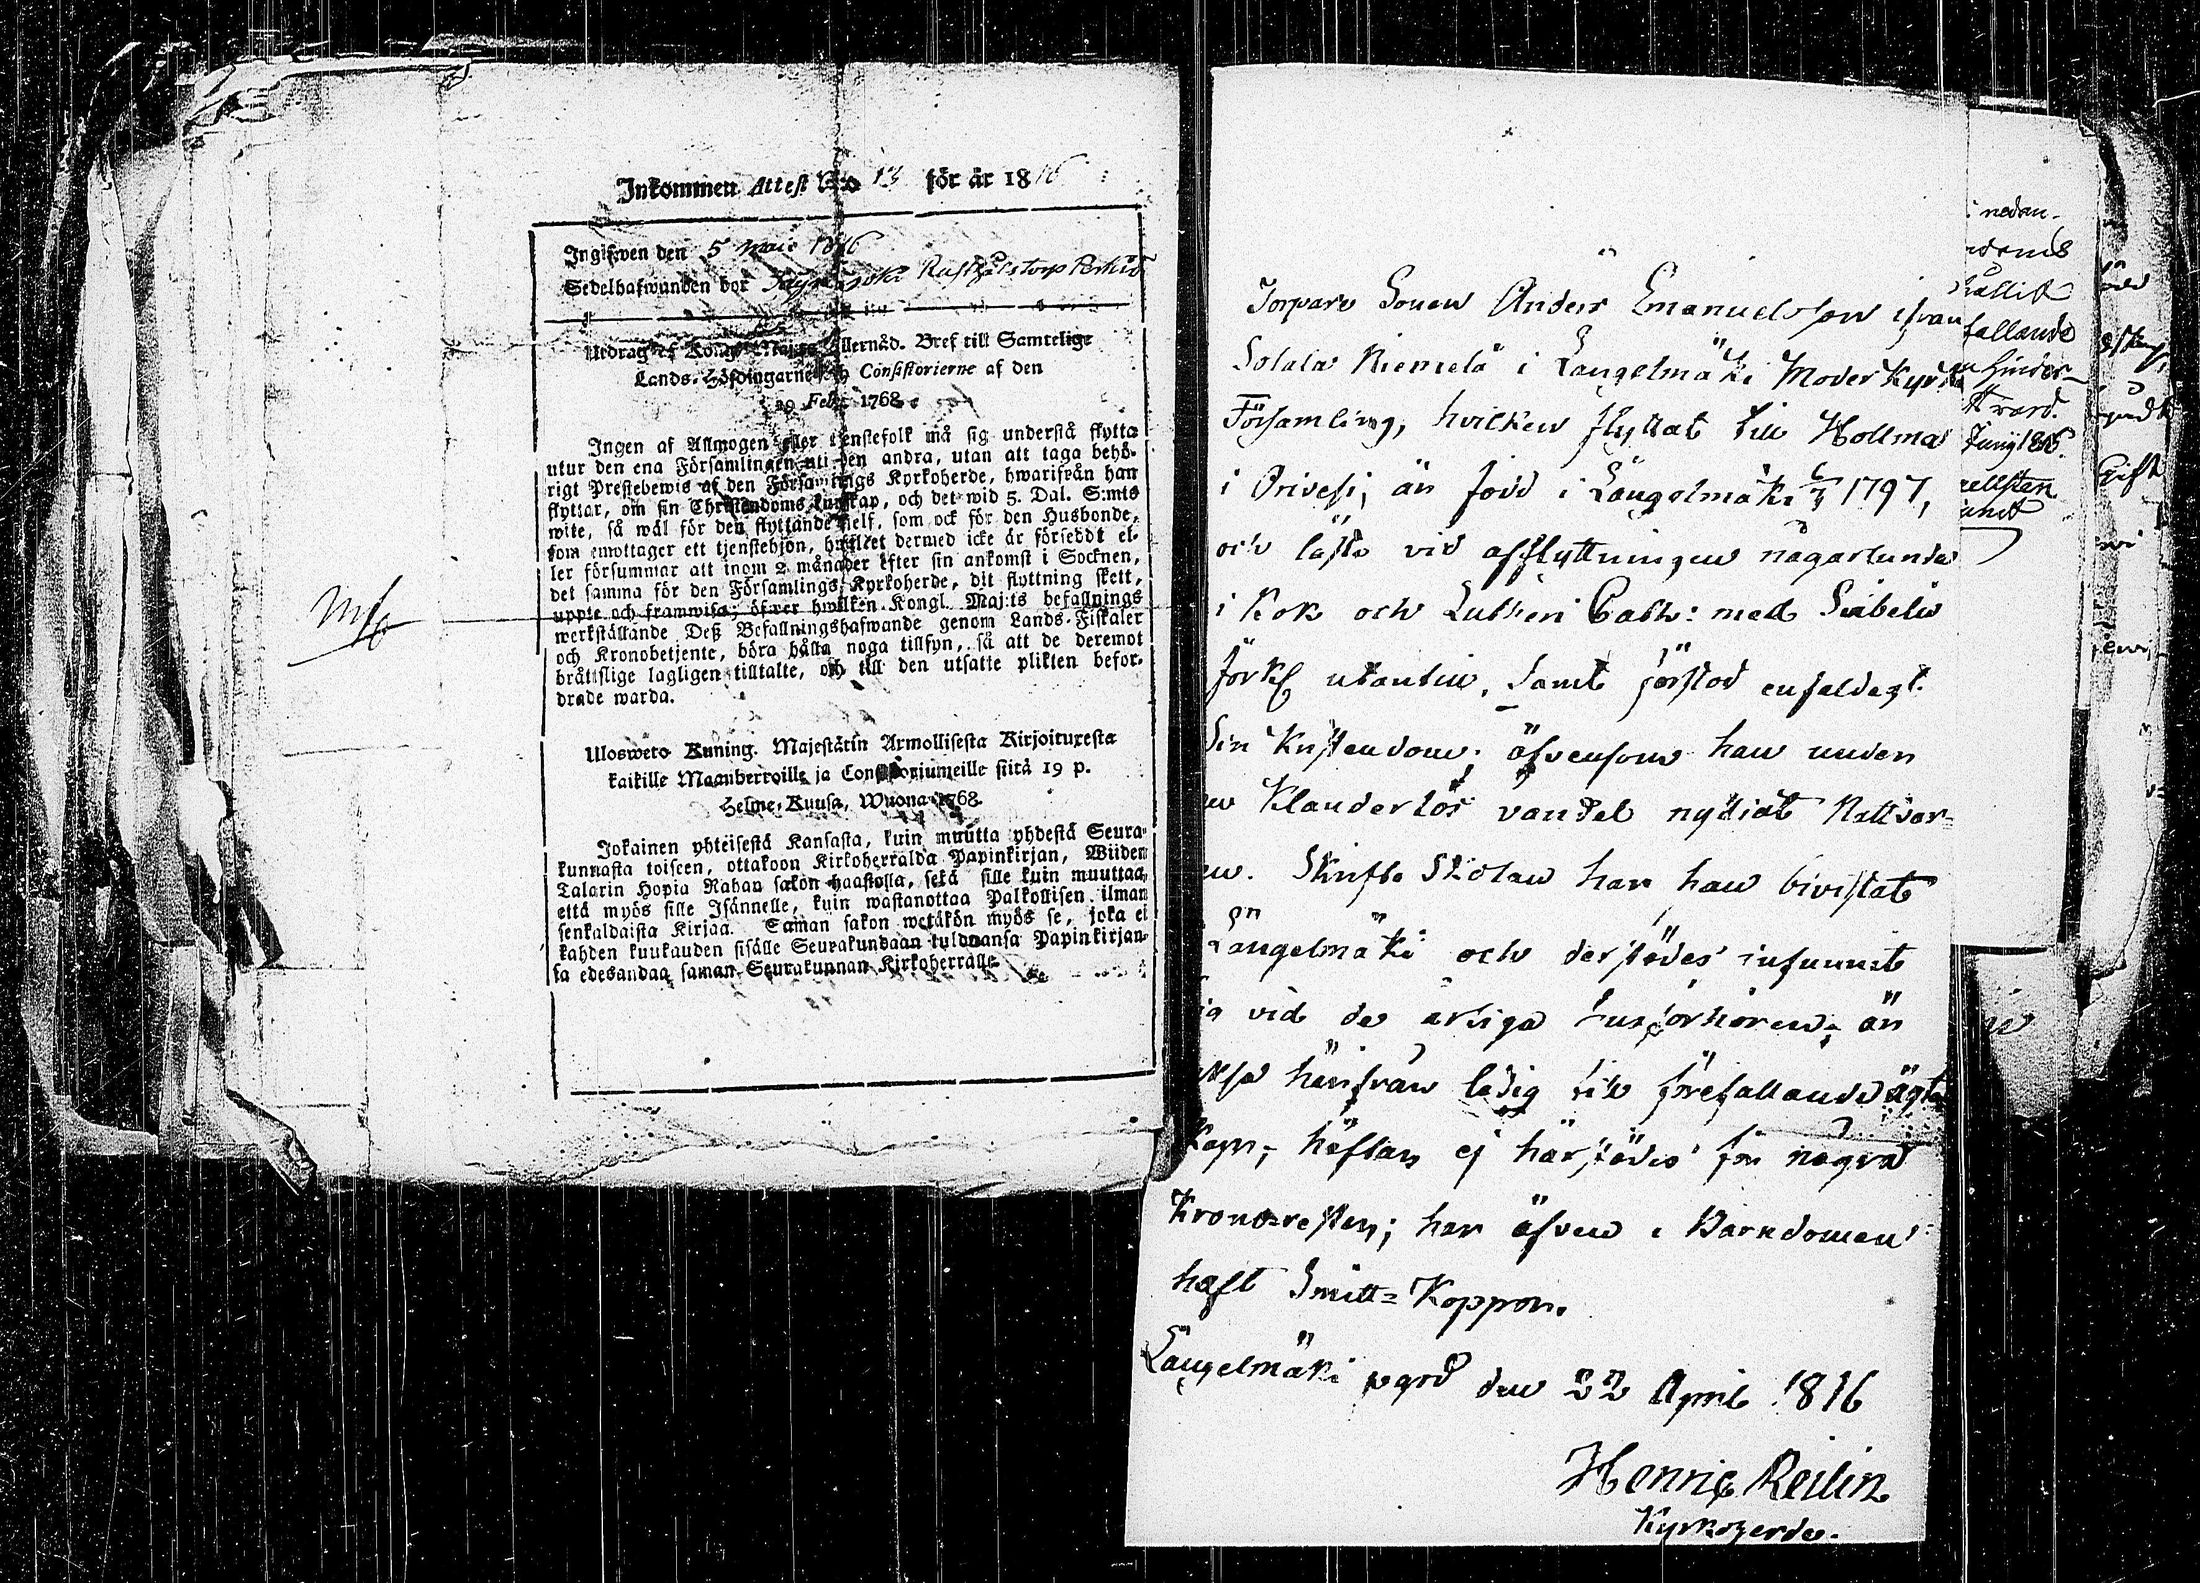 Inkommen Attest N:o 13 för år 1816
Ingifwen den 5 maii 1816
Sedelhafwanden bor
Utdrag af Kongl. Maj:ts Allernåd. Bref till Samtelige
Lands-Höfdingarne och Consistorierne af den
19 Febr. 1768.
Ingen af Allmogen eller tjenstefolk må sig understå flytta
utur den ena Församlingen uti den andra, utan att taga behö-
rigt Prestebewis af den Församlings Kyrkoherde, hwarifrån han
flyttar, om sin Christendoms kunskap, och det wid 5. Dal. S:mts
wite, så wäl för den flyttande sielf, som ock för den Husbonde,
som emottager ett tjenstehjon, hwilcet dermed icke är förseddt el-
ler försummar att inom 2 månader efter sin ankomst i Socknen,
det samma för den Församlings Kyrkoherde, dit flyttning skett,
uppte och framwisa; öfwer hwilken Kongl. Maj:ts befallnings
werkställande Deß Befallningshafwande genom Lands-Fiskaler
och Kronobetjente, böra hålla noga tillsyn, så att de deremot
bråttslige lagligen tilltalte, och till den utsatte plikten befor-
drade warda.
Ulosweto Kuning. Majestätin Armollisesta Kirjoituxesta
kaikille Maanherroille ja Consistoriumeille siitä 19 p.
Helme-Kuusa, Wuona 1768.
Jokainen yhteisestä Kansasta, kuin muutta yhdestä Seura-
kunnasta toiseen, ottakoon Kirkoherralda Papinkirjan, Wiiden
Talarin Hopia Rahan sakon haastolla, sekä sille kuin muuttaa,
että myös sille Isännelle, kuin wastanottaa Palkollisen ilman
senkaldaista Kirjaa. Saman sakon wetäkön myös se, joka ei
kahden kuukauden sisälle Seurakundaan tulduansa Papinkirjan-
sa edesandaa saman Seurakunnan Kirkoherralle.
Torpare Sonen Anders Emanuelsson ifrån
Solala Niemelä i Längelmäki Moderkyrko
Församling, hvilken flyttat till Hollma
i Orivesi, är född i Längelmäki 6/3 1797,
och läste vid afflyttningen någarlunda
i Bok och Lutheri Cath: med Svibelii
Förkl utantill, samt förstod enfaldigt
sin Kristendom; äfvensom han under
en Klanderlös vandel nyttiat Nattvar-
en. Skrifte Skolan har han bivistat
Längelmäki och derstädes infunnit
sig vid de årliga husförhören; är
härifrån ledig till förefallande ägta
skap; häftar ej härstädes för några
Kronorester; har äfven i Barndomen
haft Smitt-Koppor.
Längelmäki pgrd den 22 April 1816
Henric Reilin
Kyrkoherde.
nedan-
hållit
fallande
Hinder-
Juny 1816.
ellsten
Gift